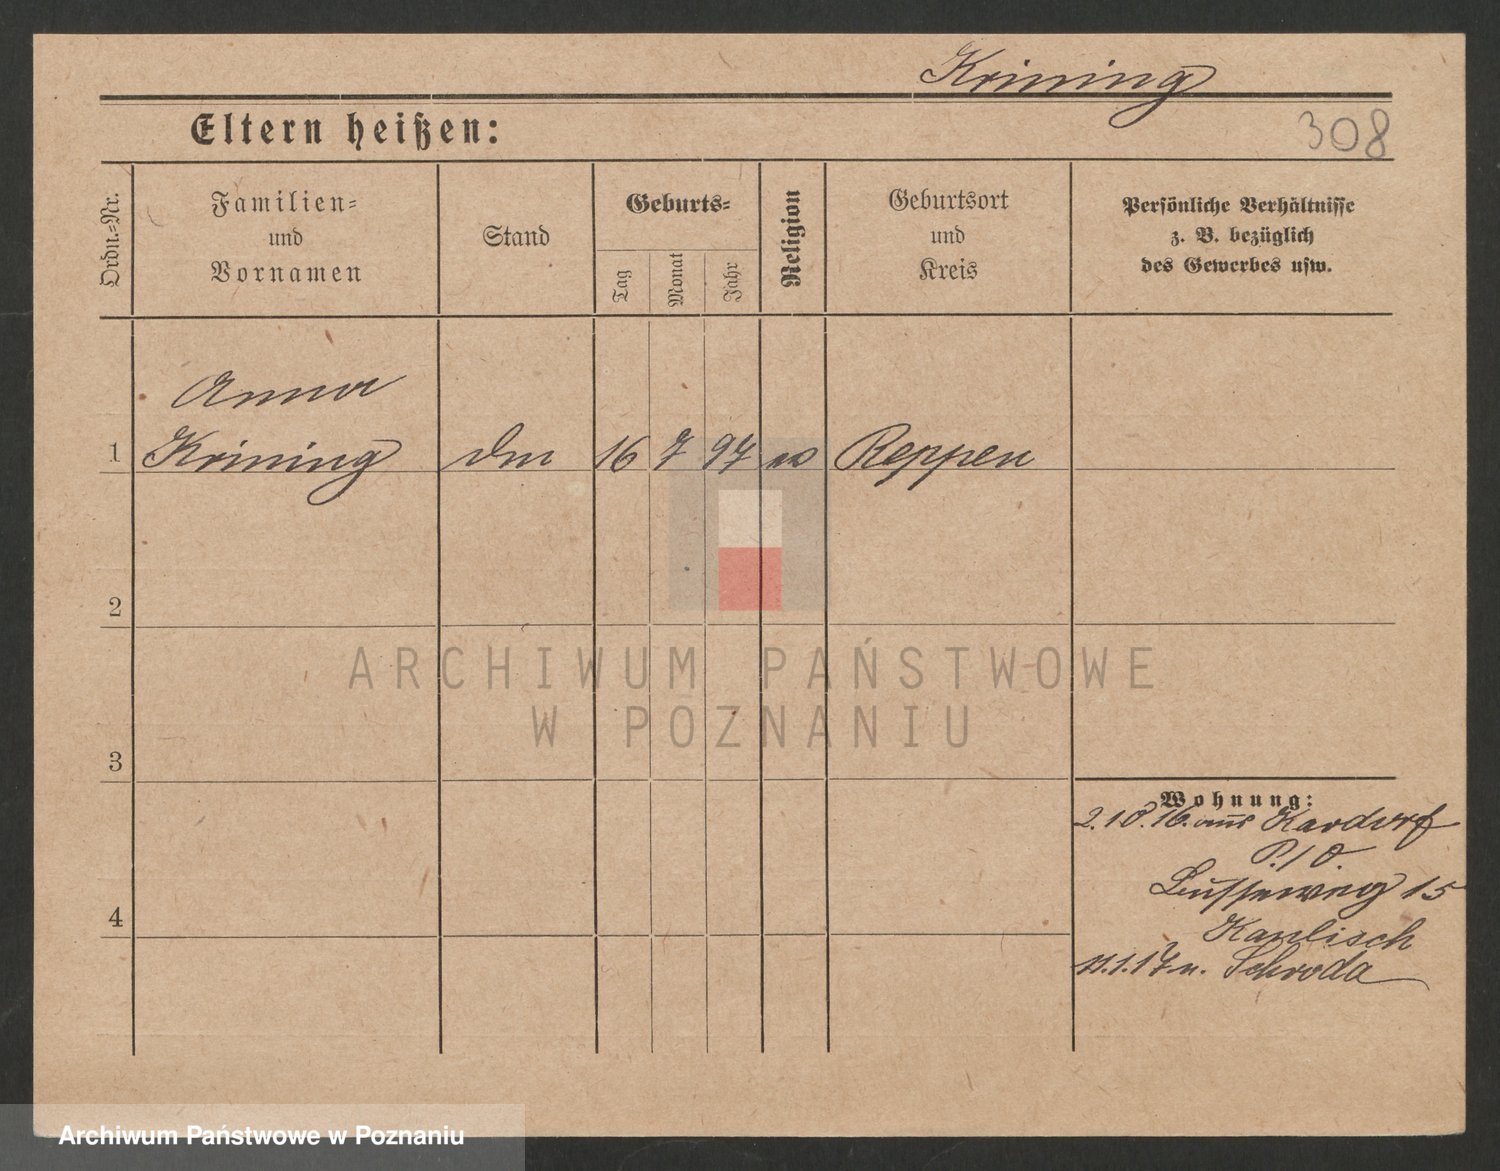 Krining
Eltern heißen:
308
Ordn.-Nr.
Familien-
und
Vornamen
Stand
Geburts-
Tag
Monat
Jahr
Religion
Geburtsort
und
Kreis
Persönliche Verhältnisse
z. B. bezüglich
des Gewerbes usw.
Anna
1 Krining 16 7 97 Reppen
2
ARCHIWUM PAŃSTWOWE
W POZNANIU
3
Wohnung:
2.10.16. aus
P. 10.
Busseweg 15
4
11.1.17 n. Schroda
Archiwum Państwowe w Poznaniu